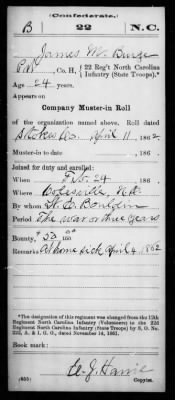 (Confederate.)
B 22 N.C.
James W. Burge
Pvt, Co. H, 22 Reg't North Carolina Infantry (State Troops).*
Age 24 years.
Appears on
Company Muster-in Roll
of the organization named above. Roll dated
Stokes Co. April 11, 1862
Muster-in to date, 186
Joined for duty and enrolled:
When Feb. 24, 186
Where Colesville, N.C.
By whom H. E. Bouldin
Period The war or three years
Bounty, $50 100
Remarks At home sick April 4, 1862
*The designation of this regiment was changed from the 12th Regiment North Carolina Infantry (Volunteers) to the 22d Regiment North Carolina Infantry (State Troops) by S. O. No. 222, A. & I. G. O., dated November 14, 1861.
Book mark:
(655) J. Harris
Copyist.